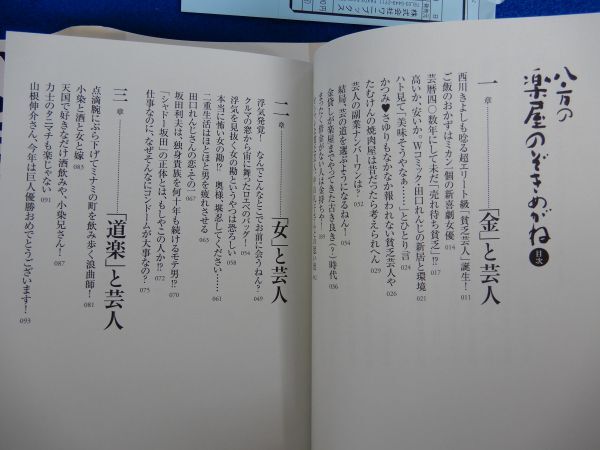 株式会社ワニブックス
八方の
楽屋のぞきめがね
目次
一章
「金」と芸人
西川きよしも唸る超エリート級「貧乏芸人」誕生! 011
ご飯のおかずはミカン一個の新喜劇女優 014
芸暦四〇数年にして未だ「売れ待ち貧乏」!? 017
高いか、安いか。Wコミック田口れんじの新居と環境 021
ハト見て「美味そうやなぁ……」とひとり言 024
かつみ♥さゆりもなかなか報われない貧乏芸人や 026
たむけんの焼肉屋は昔だったら考えられへん 029
芸人の副業ナンバーワンは? 052
結局、芸の道を選ぶようになるねん!
金貸しが楽屋までやってきた古き良き(?)時代 036
二章
「女」と芸人
浮気発覚! なんでこんなとこでお前に会うねん? 049
クルマの窓から宙に舞ったロエベのバッグ! 054
浮気を見抜く女の勘というやつは恐ろしい 058
本当に怖い女の勘!? 奥様、堪忍してください…… 061
二重生活はほとほと男を疲れさせる 065
田口れんじさんの恋その一
坂田利夫は、独身貴族を何十年も続けるモテ男!? 070
「シャドー坂田」の正体とは、もしやこの人か!? 072
仕事なのに、なぜそんなにコンドームが大事なの? 075
三章
「道楽」と芸人
点滴腕にぶら下げてミナミの町を飲み歩く浪曲師! 081
小染と酒と女と嫁 083
天国で好きなだけ酒飲みや、小染兄さん! 087
力士のタニマチも楽じゃない 091
山根伸介さん、今年は巨人優勝おめでとうございます! 093